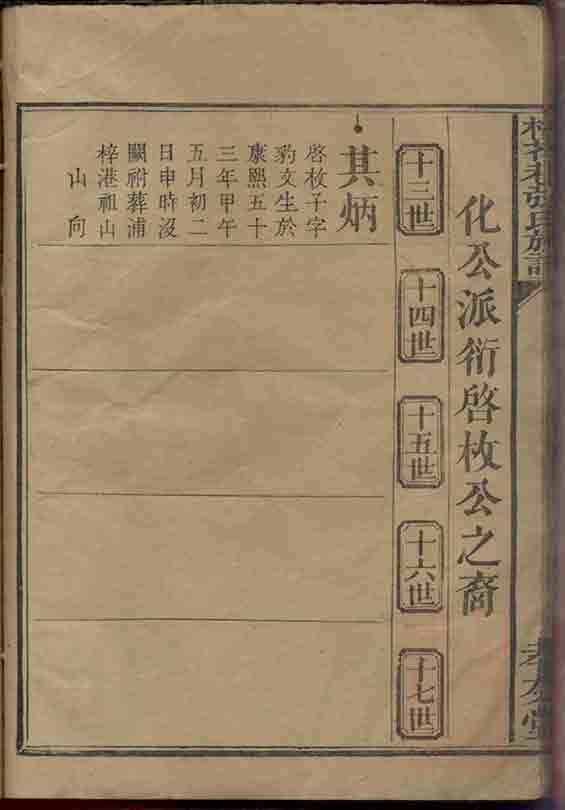 張氏族譜
孝友堂
化公派衍啓枚公之裔
十三世
十四世
十五世
十六世
十七世
其炳
啓枚子字
豹文生於
康熙五十
三年甲午
五月初二
日申時沒
闕祔葬浦
梓港祖山
山　向